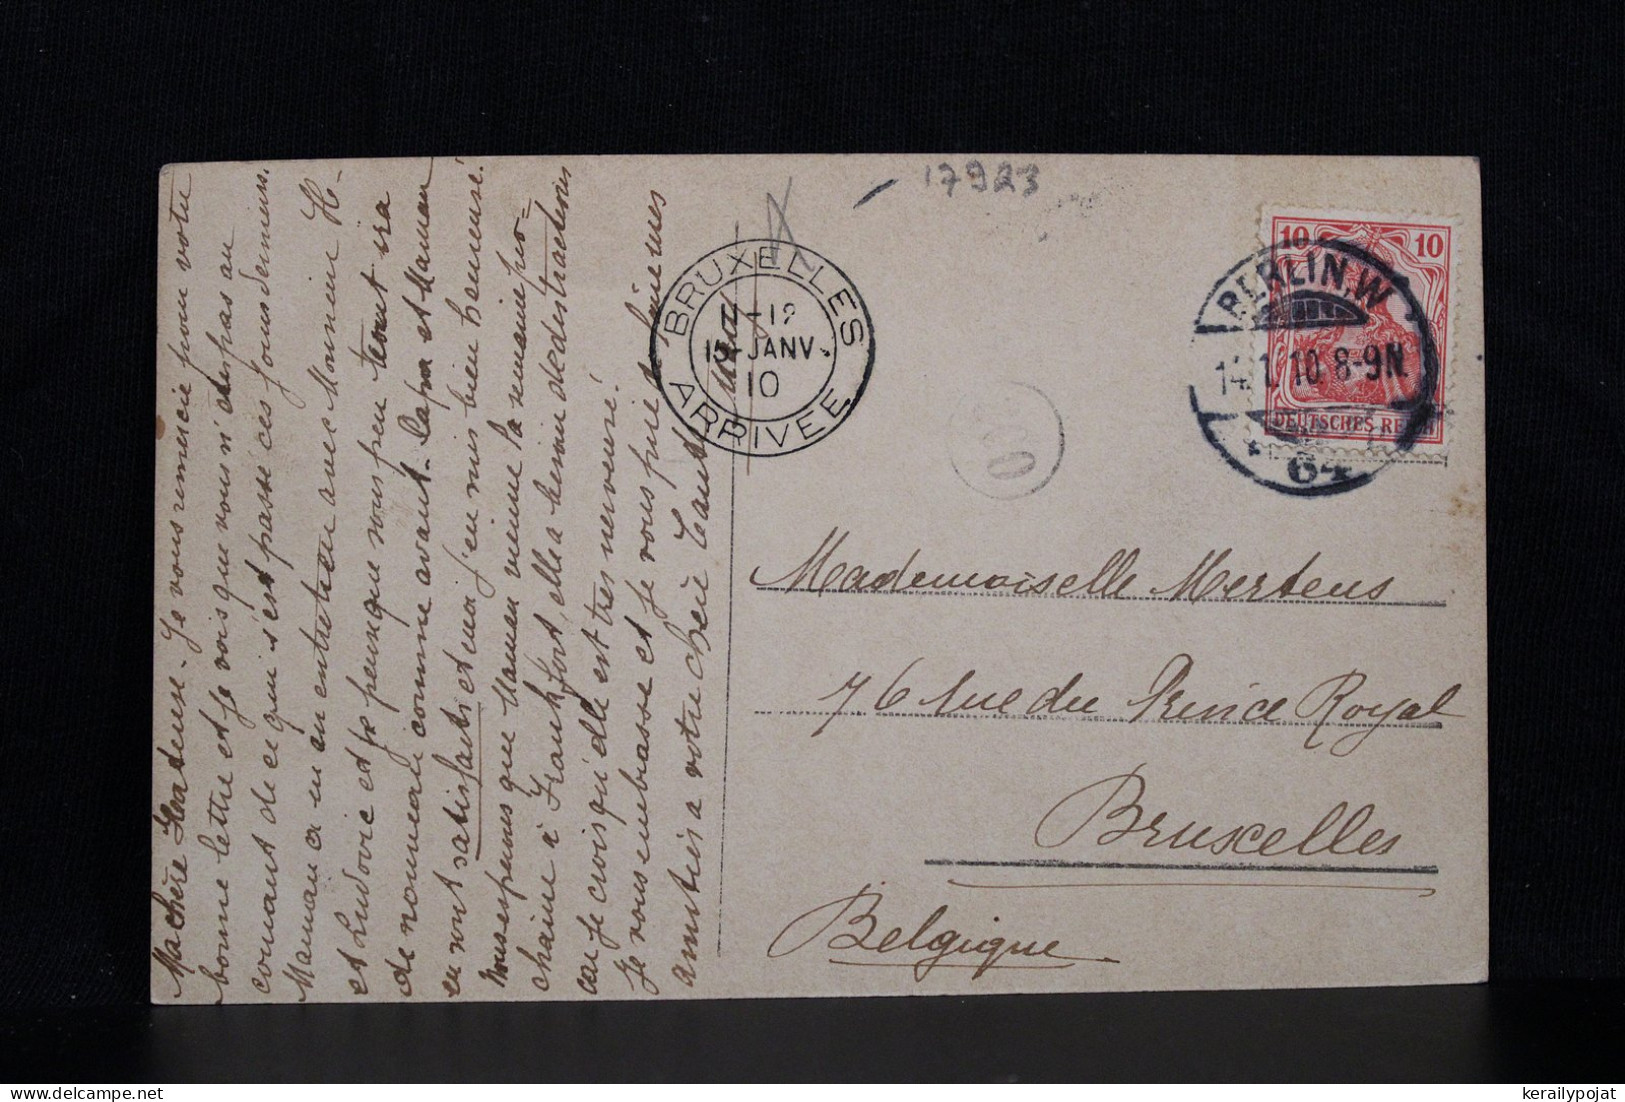 17923
BRUXELLES
11-12
15-JANV.
10
ARRIVEE
10 10
DEUTSCHES REICH
BERLIN, W.
14.1.10. 8-9N.
64
Mademoiselle Mertens
76 rue du Prince Royal
Bruxelles
Belgique
Ma chère Hortense. Je vous remercie pour votre
bonne lettre et je vois que vous n'êtes pas au
courant de ce qui s'est passé ces jours derniers.
Maman a eu un entretien avec Monsieur
et Ludovic et je pense que sous peu tout ira
de nouveau comme avant. Papa et Maman
en sont satisfaits et moi j'en suis bien heureuse.
Nous espérons que Maman vienne la semaine pro-
chaine à Frankfort, elle a besoin de distractions
car je crois qu'elle est très nerveuse.
Je vous embrasse et je vous prie
amitiés à votre chère tante
kerailypojat